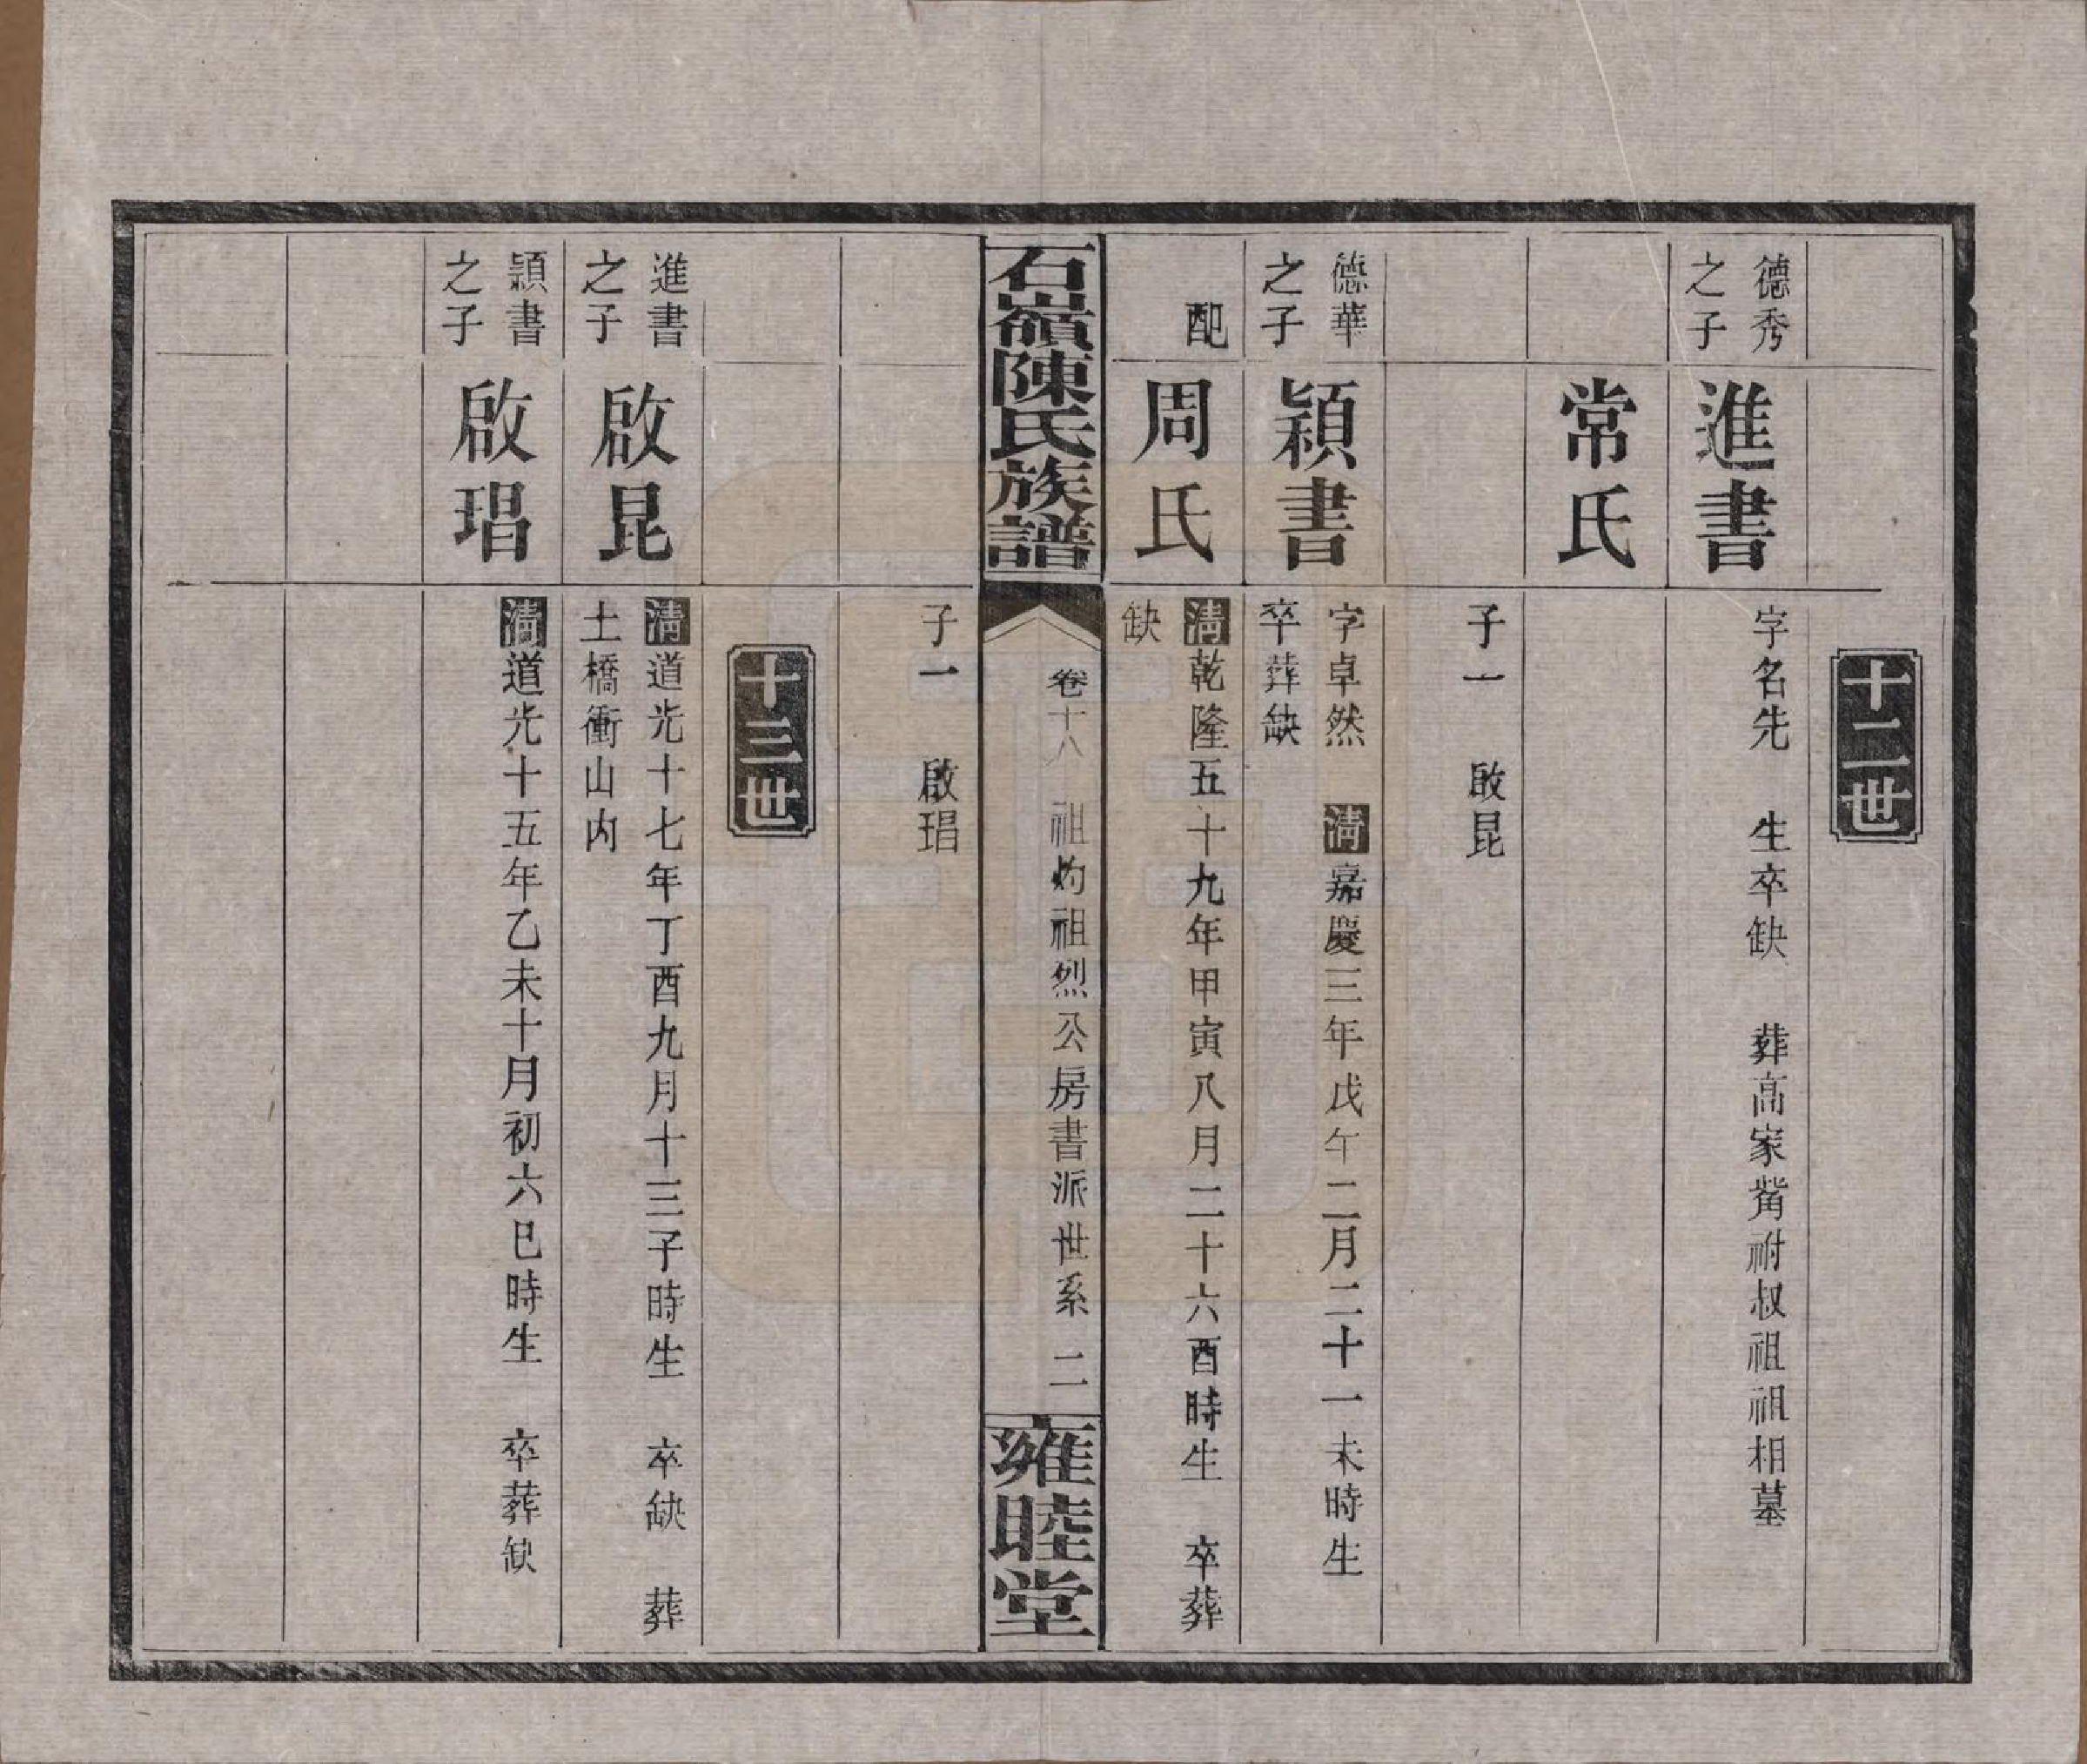 十二世
德秀
之子
進書
字名先　生卒缺　葬高家觜祔叔祖祖相墓
常氏
子一　啟昆
德華
之子
穎書
字卓然　清嘉慶三年戊午二月二十一未時生
卒葬缺
配
周氏
清乾隆五十九年甲寅八月二十六酉時生　卒葬
缺
石嶺陳氏族譜
卷十八　祖灼祖烈公房書派世系　二
雍睦堂
子一　啟琩
十三世
進書
之子
啟昆
清道光十七年丁酉九月十三子時生　卒缺　葬
土橋衝山内
穎書
之子
啟琩
清道光十五年乙未十月初六巳時生　卒葬缺